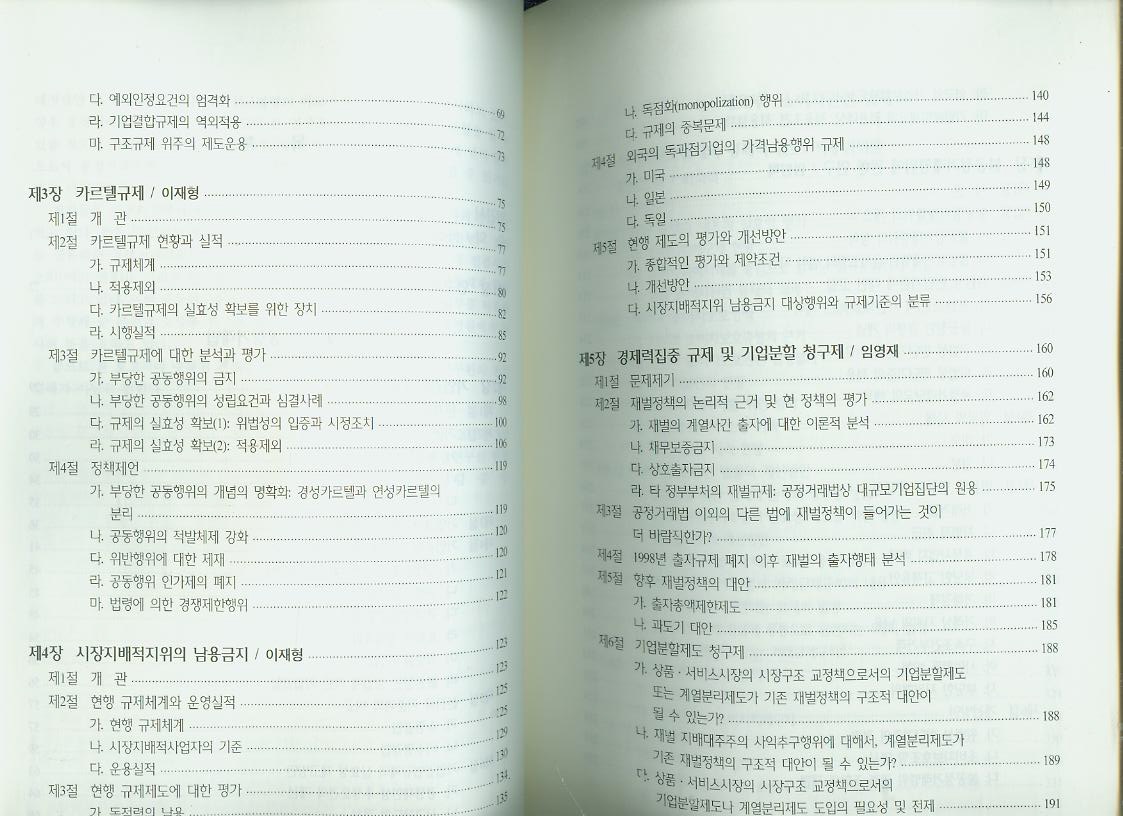 다. 예외인정요건의 엄격화 69
라. 기업결합규제의 역외적용 72
마. 구조규제 위주의 제도운용 73
제3장 카르텔규제 / 이재형 75
제1절 개 관 75
제2절 카르텔규제 현황과 실적 77
가. 규제체계 77
나. 적용제외 80
다. 카르텔규제의 실효성 확보를 위한 장치 82
라. 시행실적 85
제3절 카르텔규제에 대한 분석과 평가 92
가. 부당한 공동행위의 금지 92
나. 부당한 공동행위의 성립요건과 심결사례 98
다. 규제의 실효성 확보(1): 위법성의 입증과 시정조치 100
라. 규제의 실효성 확보(2): 적용제외 106
제4절 정책제언 119
가. 부당한 공동행위의 개념의 명확화: 경성카르텔과 연성카르텔의
분리 119
나. 공동행위의 적발체제 강화 120
다. 위반행위에 대한 제재 120
라. 공동행위 인가제의 폐지 121
마. 법령에 의한 경쟁제한행위 122
제4장 시장지배적지위의 남용금지 / 이재형 123
제1절 개 관 123
제2절 현행 규제체계와 운영실적 125
가. 현행 규제체계 125
나. 시장지배적사업자의 기준 129
다. 운용실적 130
제3절 현행 규제제도에 대한 평가 134
가. 독점력의 남용 135
나. 독점화(monopolization) 행위 140
다. 규제의 중복문제 144
제4절 외국의 독과점기업의 가격남용행위 규제 148
가. 미국 148
나. 일본 149
다. 독일 150
제5절 현행 제도의 평가와 개선방안 151
가. 종합적인 평가와 제약조건 151
나. 개선방안 153
다. 시장지배적지위 남용금지 대상행위와 규제기준의 분류 156
제5장 경제력집중 규제 및 기업분할 청구제 / 임영재 160
제1절 문제제기 160
제2절 재벌정책의 논리적 근거 및 현 정책의 평가 162
가. 재벌의 계열사간 출자에 대한 이론적 분석 162
나. 채무보증금지 173
다. 상호출자금지 174
라. 타 정부부처의 재벌규제: 공정거래법상 대규모기업집단의 원용 175
제3절 공정거래법 이외의 다른 법에 재벌정책이 들어가는 것이
더 바람직한가? 177
제4절 1998년 출자규제 폐지 이후 재벌의 출자행태 분석 178
제5절 향후 재벌정책의 대안 181
가. 출자총액제한제도 181
나. 과도기 대안 185
제6절 기업분할제도 청구제 188
가. 상품·서비스시장의 시장구조 교정책으로서의 기업분할제도
또는 계열분리제도가 기존 재벌정책의 구조적 대안이
될 수 있는가? 188
나. 재벌 지배대주주의 사익추구행위에 대해서, 계열분리제도가
기존 재벌정책의 구조적 대안이 될 수 있는가? 189
다. 상품·서비스시장의 시장구조 교정책으로서의
기업분할제도나 계열분리제도 도입의 필요성 및 전제 191